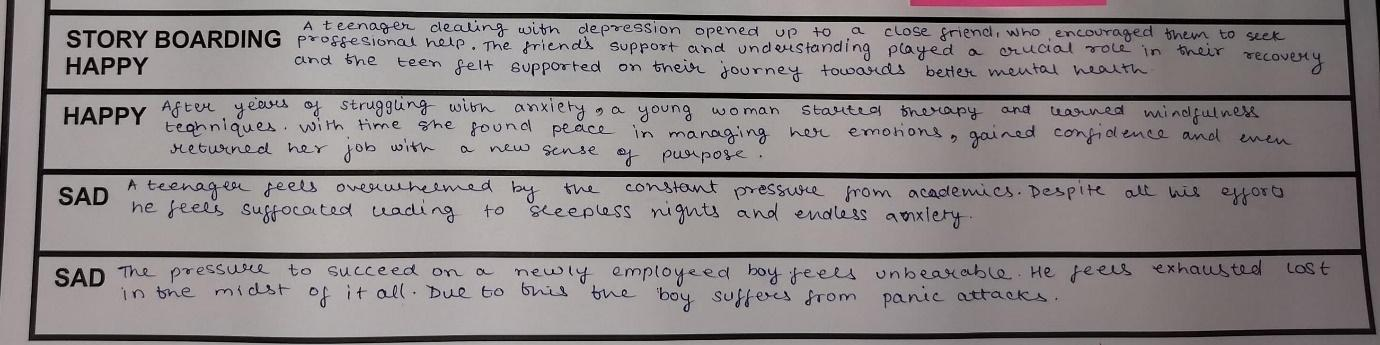 STORY BOARDING A teenager dealing with depression opened up to a close friend, who encouraged them to seek
HAPPY proffesional help. The friend's support and understanding played a crucial role in their recovery
and the teen felt supported on their journey towards better mental health.
HAPPY After years of struggling with anxiety, a young woman started therapy and learned mindfulness
teqhniques. With time she found peace in managing her emotions, gained confidence and even
returned her job with a new sense of purpose.
SAD A teenager feels overwhelmed by the constant pressure from academics. Despite all his efforts
he feels suffocated leading to sleepless nights and endless anxiety.
SAD The pressure to succeed on a newly employeed boy feels unbearable. He feels exhausted lost
in the midst of it all. Due to this the boy suffers from panic attacks.